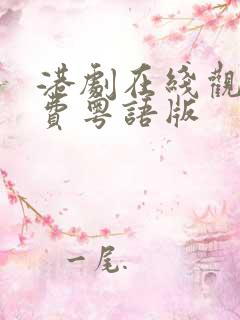 港劇在綫觀
費粵語版
一尾.